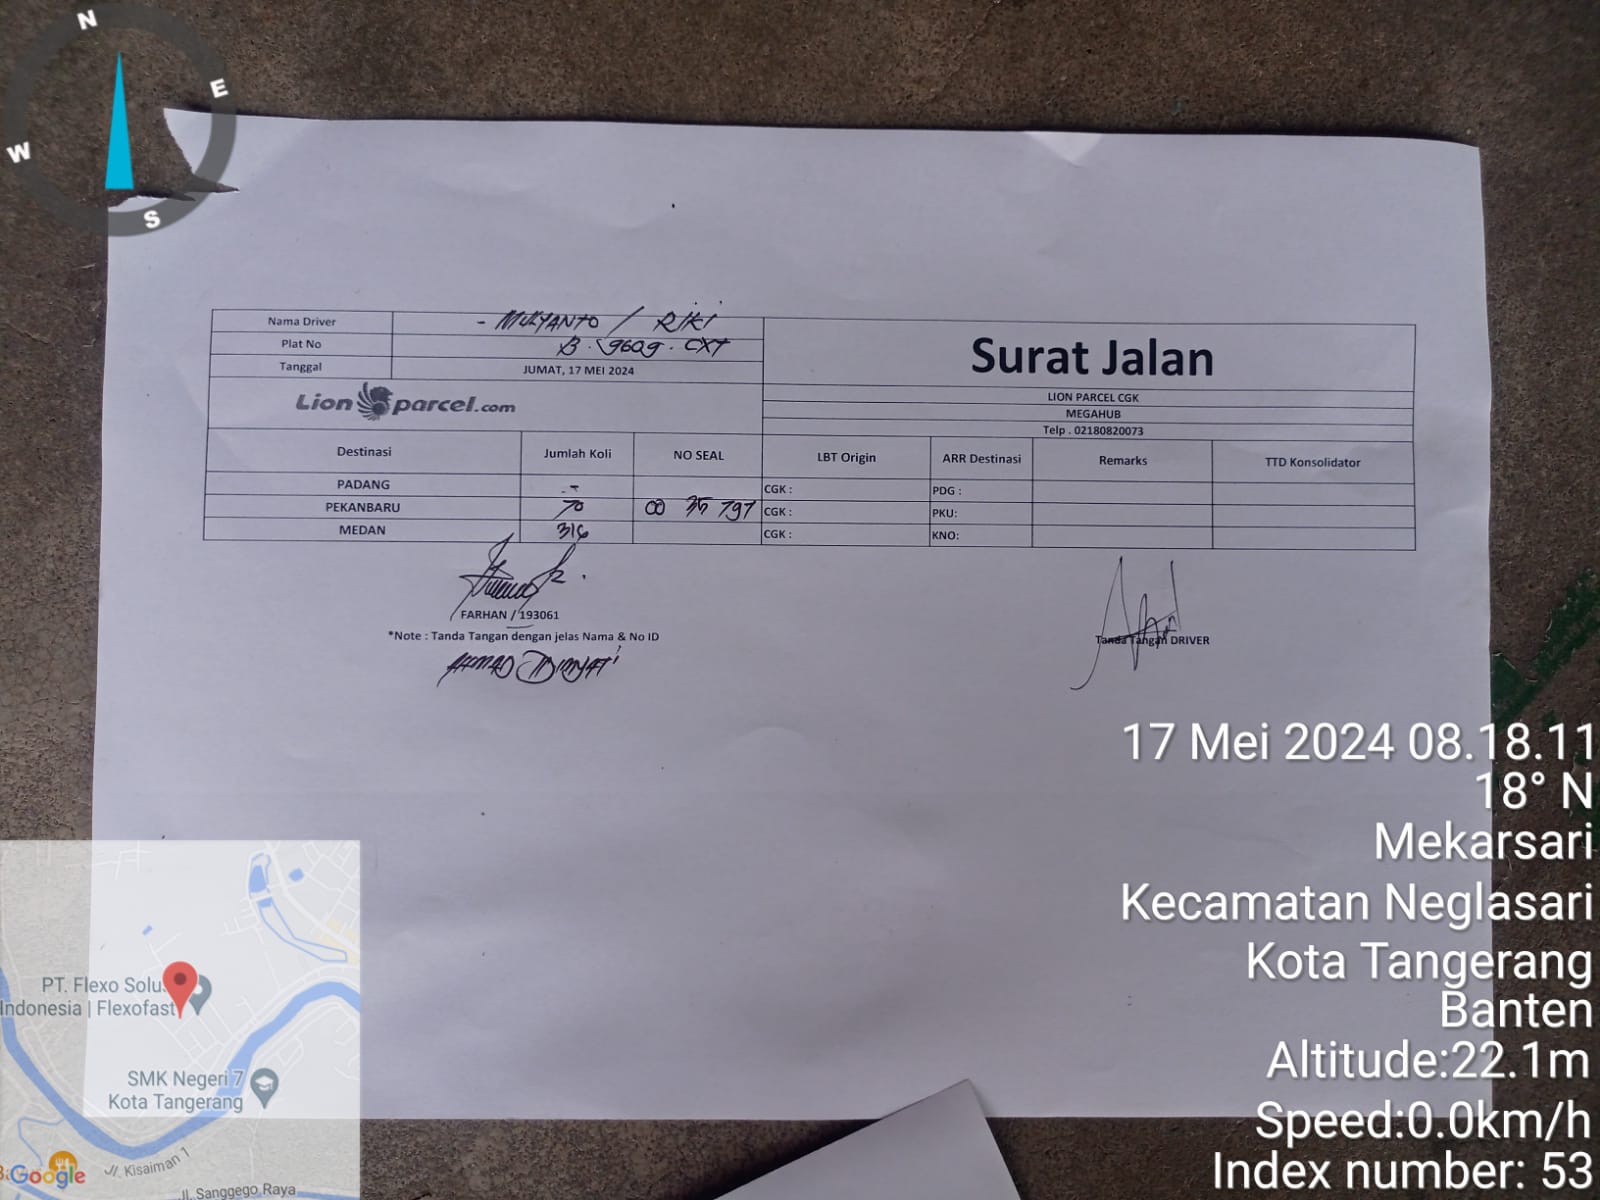 N
E
W
S
Nama Driver - MULYANTO / RIKI
Plat No B. 9609. CXT
Tanggal JUMAT, 17 MEI 2024
Surat Jalan
Lion parcel.com
LION PARCEL CGK
MEGAHUB
Telp . 02180820073
Destinasi Jumlah Koli NO SEAL LBT Origin ARR Destinasi Remarks TTD Konsolidator
PADANG - CGK : PDG :
PEKANBARU 70 00 35 797 CGK : PKU:
MEDAN 316 CGK : KNO:
FARHAN / 193061
*Note : Tanda Tangan dengan jelas Nama & No ID
Tanda Tangan DRIVER
17 Mei 2024 08.18.11
18° N
Mekarsari
Kecamatan Neglasari
Kota Tangerang
Banten
Altitude:22.1m
Speed:0.0km/h
Index number: 53
PT. Flexo Solus
Indonesia | Flexofast
SMK Negeri 7
Kota Tangerang
Jl. Kisaiman 1
Google
Jl. Sanggego Raya